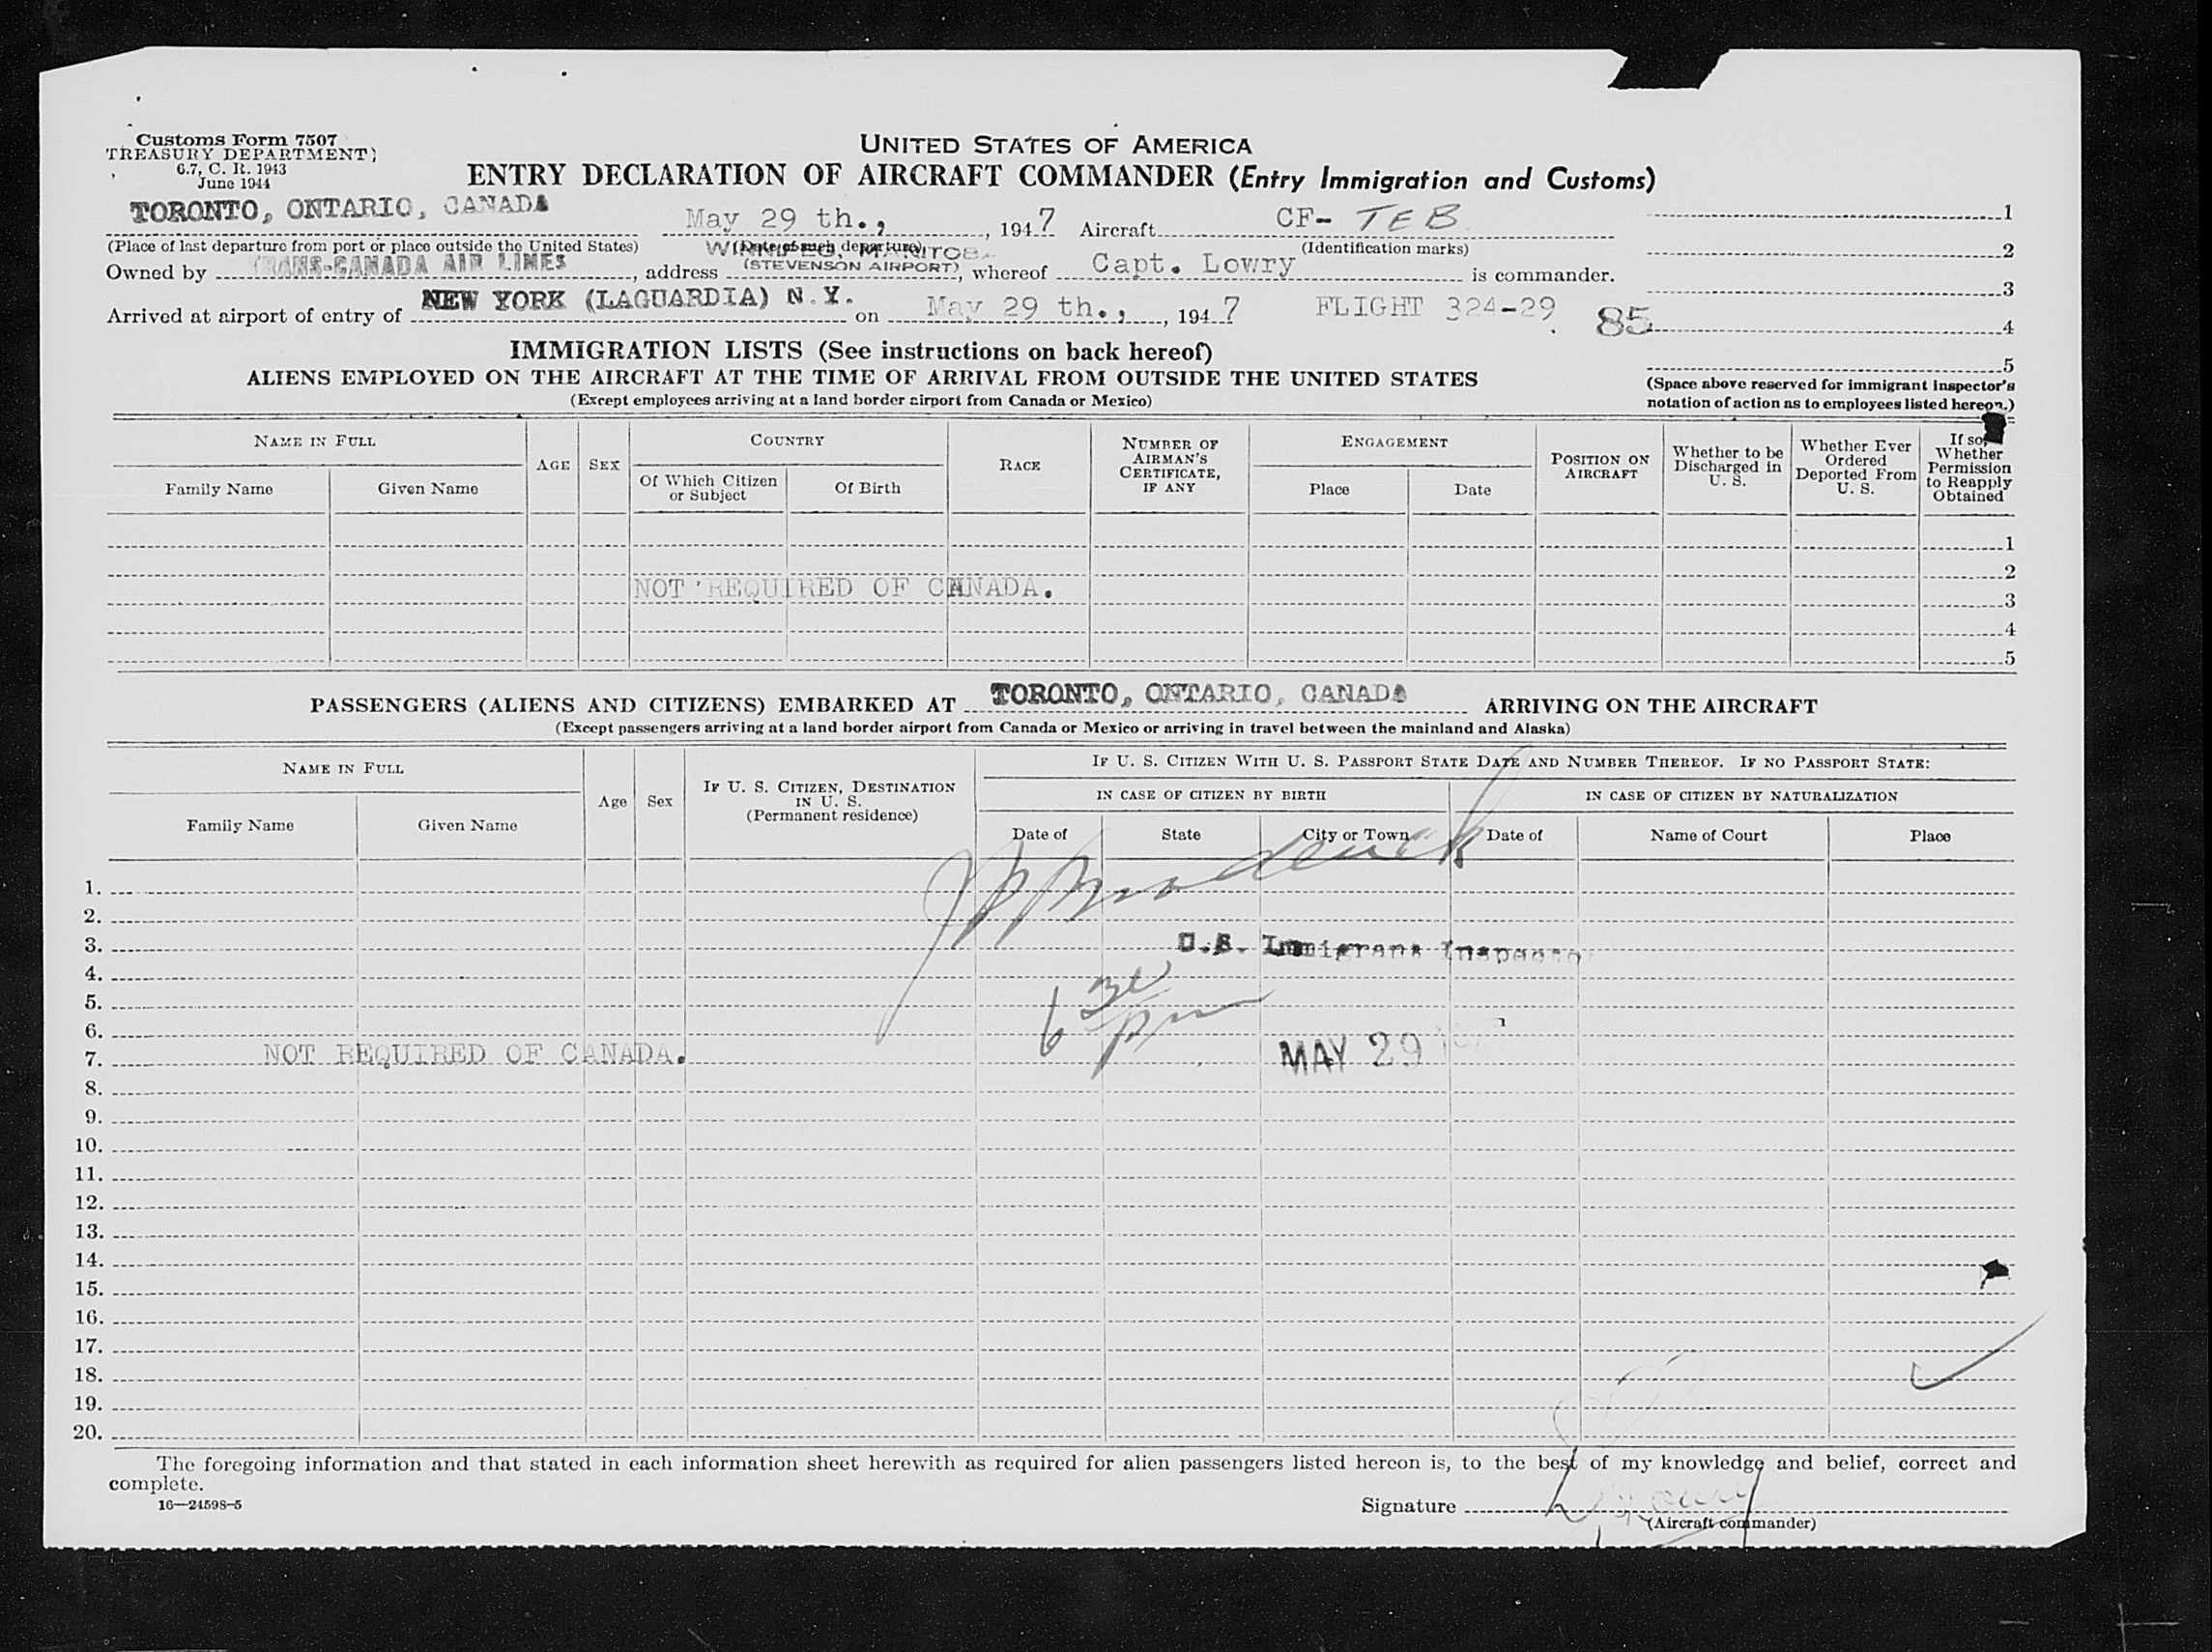 Customs Form 7507
TREASURY DEPARTMENT)
6.7, C. R. 1943
June 1944
UNITED STATES OF AMERICA
ENTRY DECLARATION OF AIRCRAFT COMMANDER (Entry Immigration and Customs)
TORONTO, ONTARIO, CANADA May 29 th., 1947 Aircraft CF- TEB 1
(Place of last departure from port or place outside the United States) (Date of such departure) (Identification marks) 2
WINNIPEG, MANITOBA
Owned by TRANS-CANADA AIR LINES, address (STEVENSON AIRPORT), whereof Capt. Lowry is commander.
3
Arrived at airport of entry of NEW YORK (LAGUARDIA) N.Y. on May 29 th., 1947 FLIGHT 324-29 85 4
IMMIGRATION LISTS (See instructions on back hereof)
5
ALIENS EMPLOYED ON THE AIRCRAFT AT THE TIME OF ARRIVAL FROM OUTSIDE THE UNITED STATES
(Except employees arriving at a land border airport from Canada or Mexico)
(Space above reserved for immigrant inspector's
notation of action as to employees listed hereon.)
NAME IN FULL
Family Name
Given Name
AGE
SEX
COUNTRY
Of Which Citizen
or Subject
Of Birth
RACE
NUMBER OF
AIRMAN'S
CERTIFICATE,
IF ANY
ENGAGEMENT
Place
Date
POSITION ON
AIRCRAFT
Whether to be
Discharged in
U. S.
Whether Ever
Ordered
Deported From
U. S.
If so,
Whether
Permission
to Reapply
Obtained
1
2
NOT REQUIRED OF CANADA.
3
4
5
PASSENGERS (ALIENS AND CITIZENS) EMBARKED AT TORONTO, ONTARIO, CANADA ARRIVING ON THE AIRCRAFT
(Except passengers arriving at a land border airport from Canada or Mexico or arriving in travel between the mainland and Alaska)
NAME IN FULL
Family Name
Given Name
Age
Sex
IF U. S. CITIZEN, DESTINATION
IN U. S.
(Permanent residence)
IF U. S. CITIZEN WITH U. S. PASSPORT STATE DATE AND NUMBER THEREOF. IF NO PASSPORT STATE:
IN CASE OF CITIZEN BY BIRTH
IN CASE OF CITIZEN BY NATURALIZATION
Date of
State
City or Town
Date of
Name of Court
Place
1.
2.
3. U.S. Immigrant Inspector
4.
5.
6.
7. NOT REQUIRED OF CANADA. 6 pm MAY 29
8.
9.
10.
11.
12.
13.
14.
15.
16.
17.
18.
19.
20.
The foregoing information and that stated in each information sheet herewith as required for alien passengers listed hereon is, to the best of my knowledge and belief, correct and
complete.
16—24598-5
Signature
(Aircraft commander)